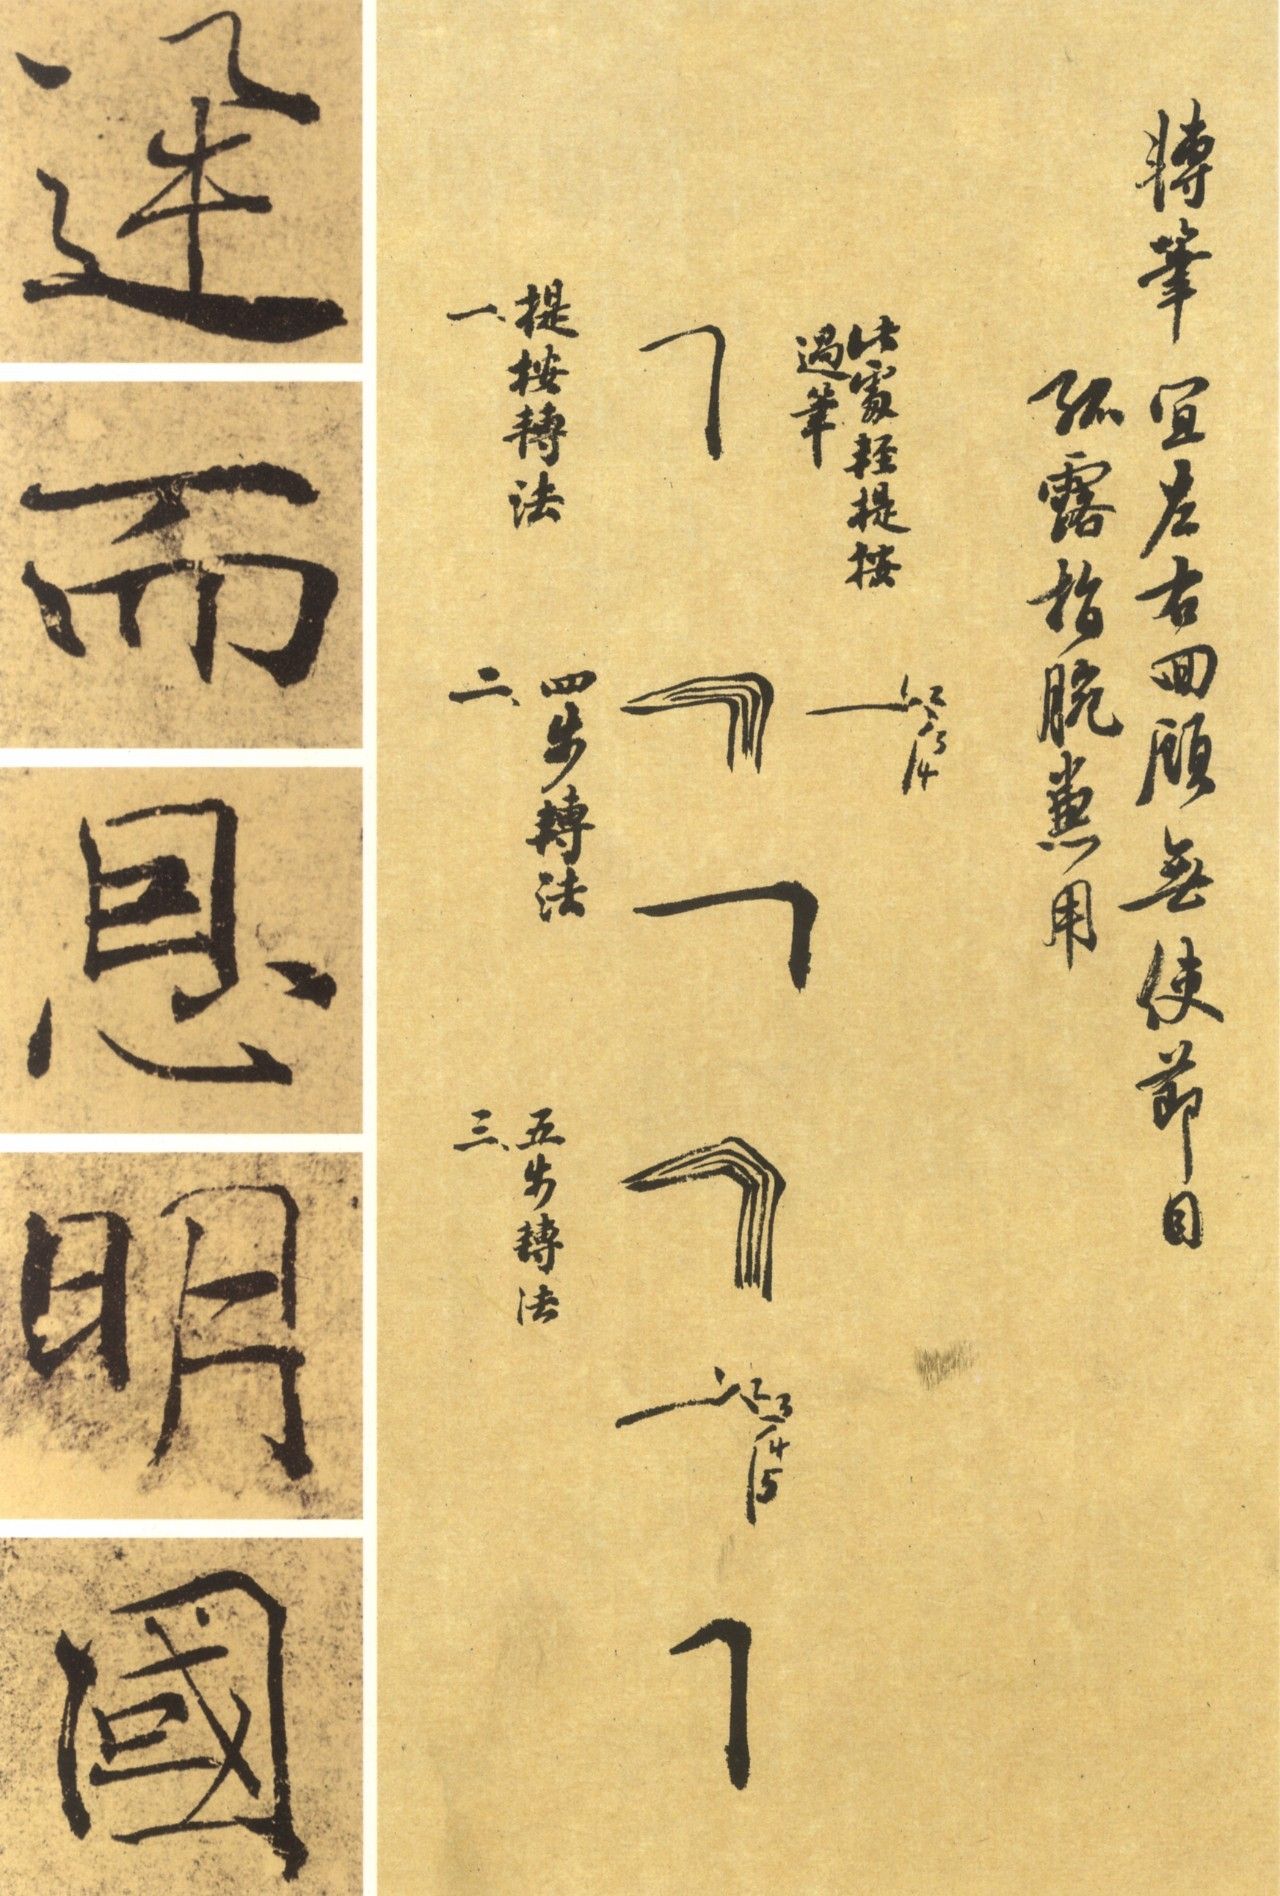 轉筆 宜左右回顧無使節目
孤露指腕兼用
此處輕提按
過筆
一、提按轉法
1 2 3 4
二、四步轉法
三、五步轉法
1 2 3 4 5
而
恩
明
國